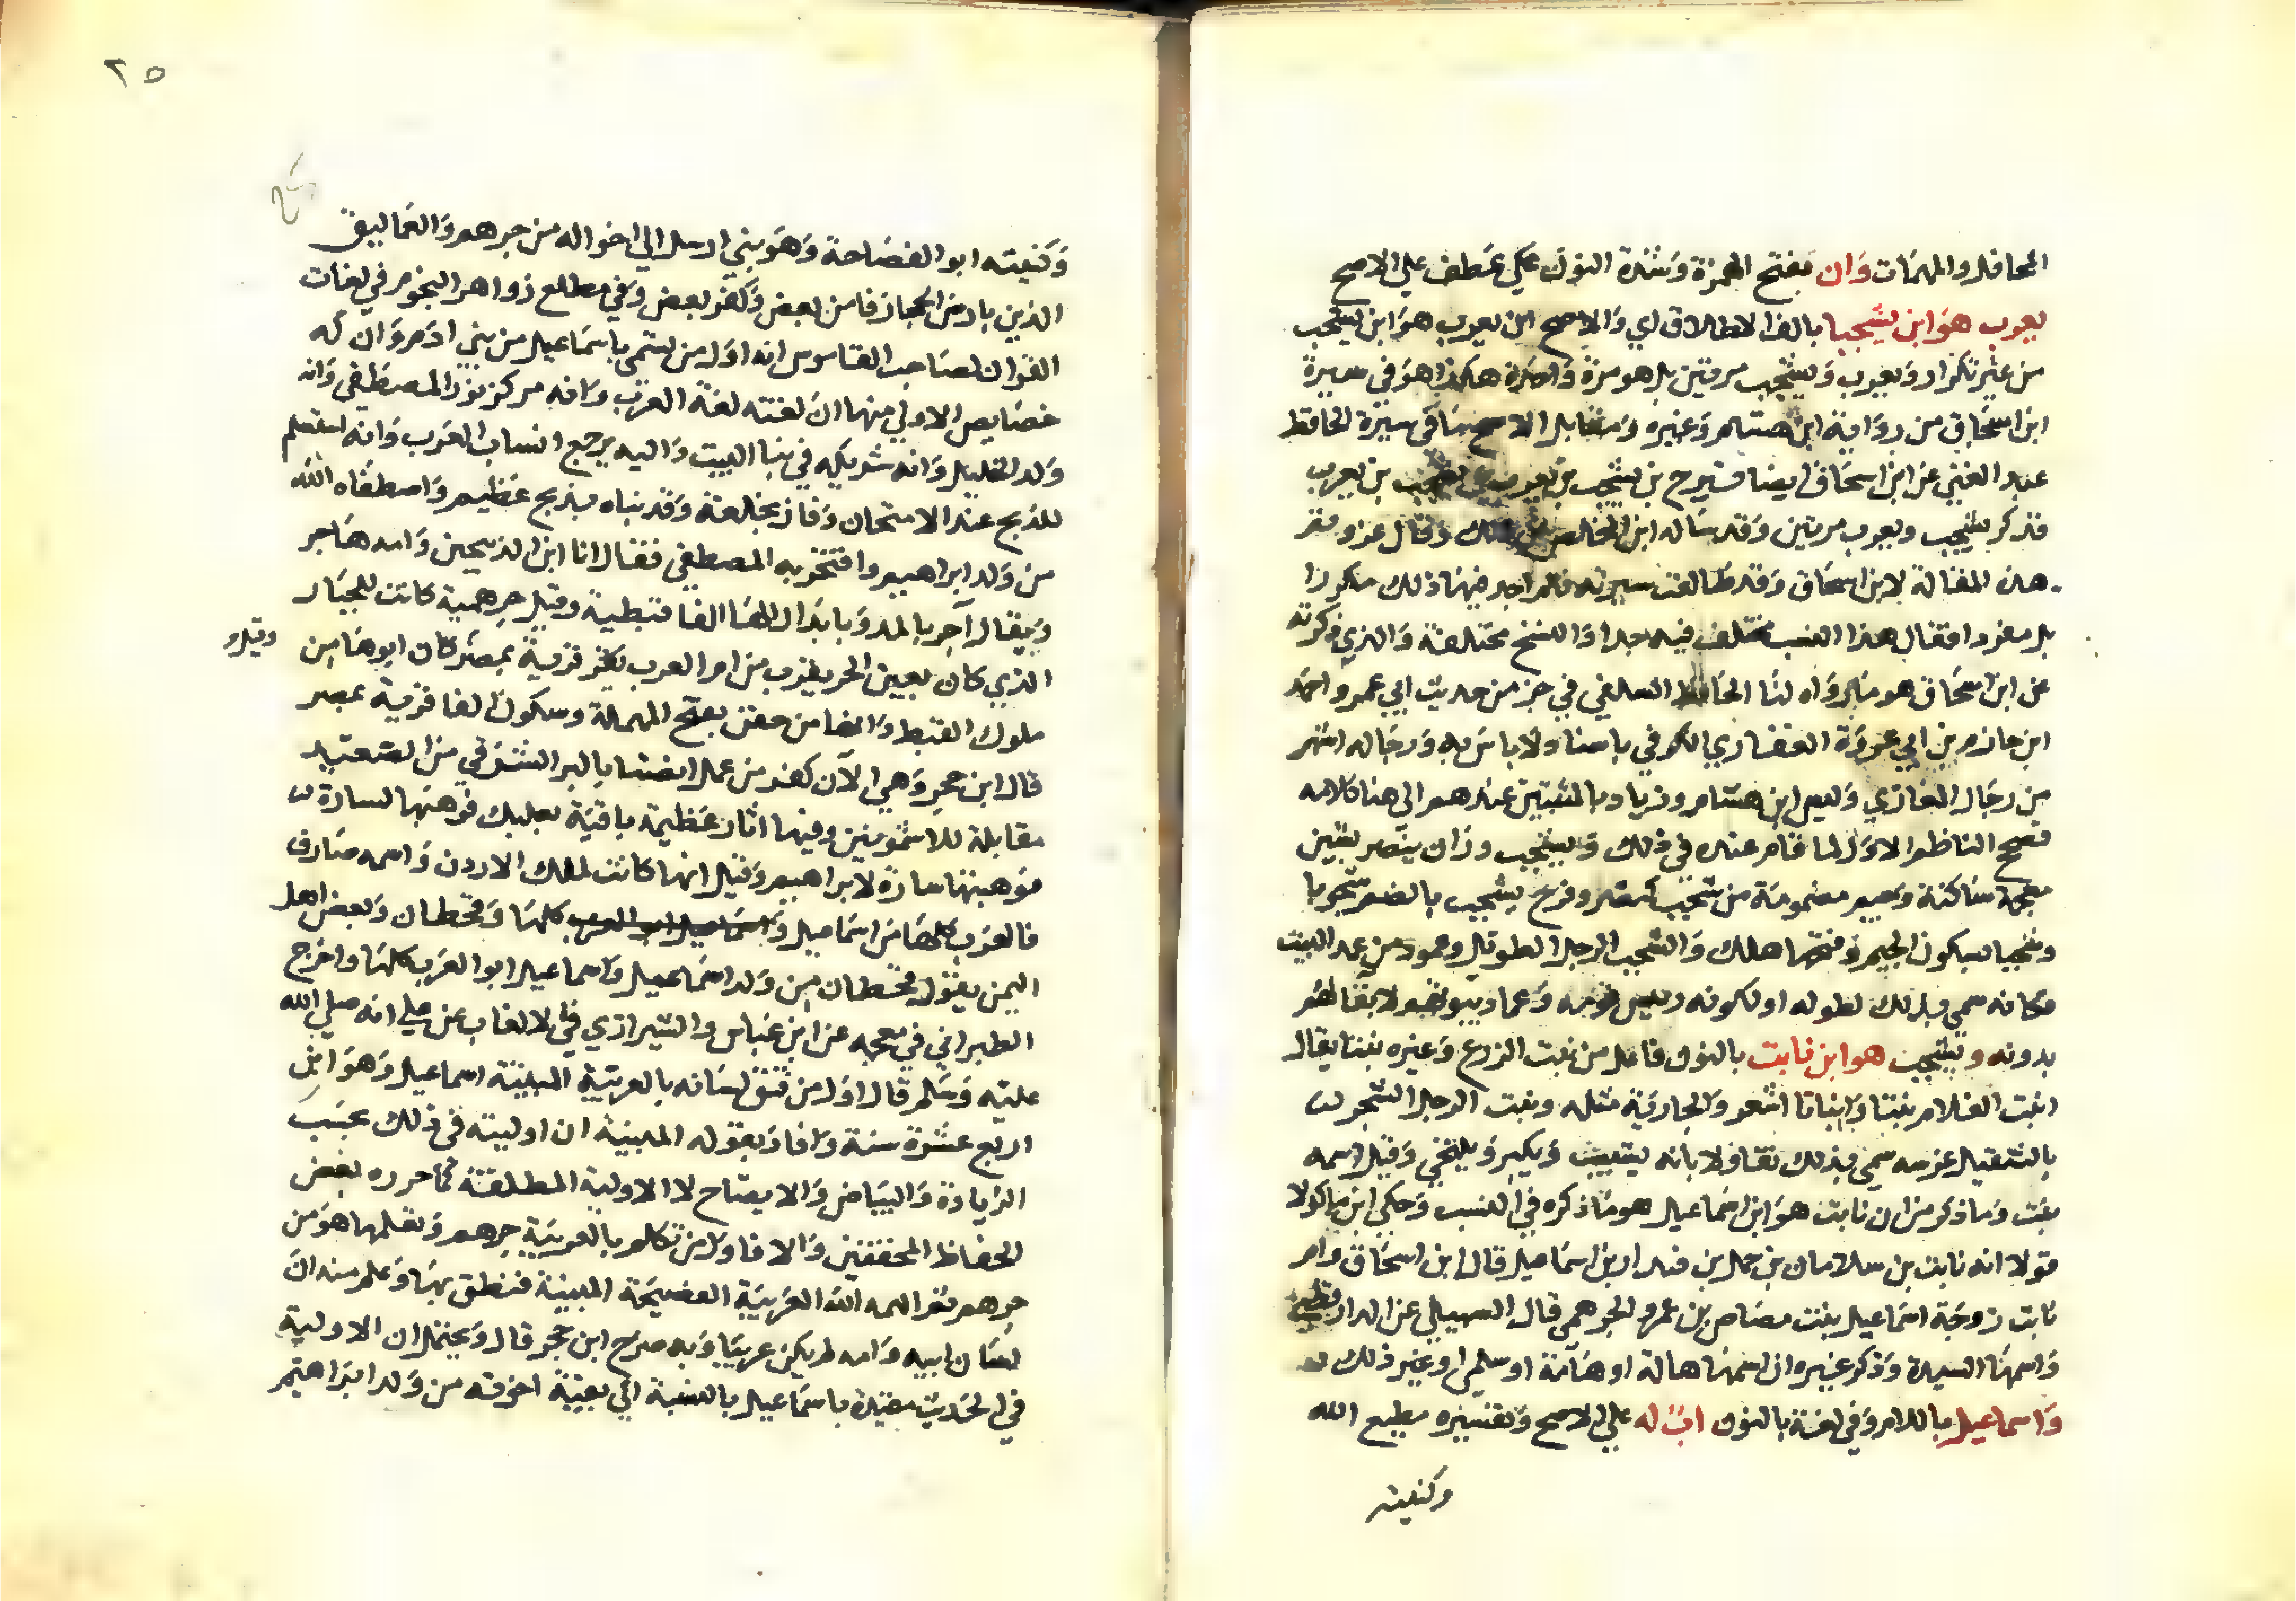 المحافل والمهمات وان بفتح الهمزة وشدة النون عطف علي الاصح
يعرب هو ابن يشجبا بالف الاطلاق اي والاصح ان يعرب هو ابن يشجب
من غير تكرار ويعرب ويشجب مرتين بل هو مرة واحدة هكذا هو في سيرة
ابن اسحاق من رواية ابن هشام وغيره ومقابل الاصح ما في سيرة الحافظ
عبد الغني عن ابن اسحاق ايضا تيرح بن يشجب بن يعرب بن يشجب بن يعرب
فذكر يشجب ويعرب مرتين وقد ساله ابن عن ذلك وقال عزو
هذه المقالة لابن اسحاق وقد طالعت سيرته فلم اجد فيها ذلك مكررا
بل مفردا فقال هذا النسب مختلف فيه جدا والنسخ مختلفة والذي ذكرته
عن ابن اسحاق هو ما رواه لنا الحافظ السلفي في جز من حديث ابي عمرو احمد
ابن حازم بن ابي غرزة الغفاري الكوفي باسناد لا باس به ورجاله اشهر
من رجال المغازي وليس ابن هشام وزياد بالمثبتين عندهم الي هنا كلامه
فصحح الناظم الاول لما قام عنده في ذلك ويشجب وزان ينصر بشين
معجمة ساكنة وجيم مضمومة من شجب كنصر وفرح يشجب بالضم شجوبا
وشجبا بسكون الجيم وفتحها هلك والشجب الرجل الطويل وعمود من عمد البيت
فكانه سمي بذلك لطوله او لكونه رييس قومه وعماد بيوتهم لا بقا لهم
بدونه ويشجب هو ابن نابت بالنون فاعل من نبت الزرع وغيره نبتا يقال
انبت الغلام نبتا وانباتا اشعر والجارية مثله ونبت الرجل الشجر
بالتثقيل غرسه سمي بذلك تفاولا بانه يثبت ويكبر وقيل اسمه
نبت وما ذكر من ان نابت هو ابن اسماعيل هو ما ذكره في النسب وحكي ابن ماكولا
قولا انه نابت بن سلامان بن حمل بن قيدار بن اسماعيل قال ابن اسحاق وام
نابت زوجة اسماعيل بنت مضاض بن عمرو الجرهمي قال السهيلي عن الدارقطني
واسمها السيدة وذكر غيره ان اسمها هالة او هامة او سلمي او غير ذلك
واسماعيل باللام وفي لغة بالنون اب له علي الاصح وتفسيره مطيع الله
وكنيته
٢٥
وكنيته ابو الفصاحة وهو نبي ارسل الي اخواله من جرهم والعماليق
الذين بارض الحجاز فامن بعض وكفر بعض وفي مطلع زواهر النجوم في لغات
القران لصاحب القاموس انه اول من تسمي باسماعيل من بني ادم وان له
خصايص الاولي منها ان لغته لغة العرب وانه مركز نور المصطفي وانه
ولد الخليل وانه شريكه في بنا البيت واليه يرجع انساب العرب وانه استسلم
للذبح عند الامتحان وفاز بخلعة وفديناه بذبح عظيم واصطفاه الله
من ولد ابراهيم وافتخر به المصطفي فقال انا ابن الذبيحين وامه هاجر
ويقال آجر بالمد وبابدال الها الفا قبطية وقيل جرهمية كانت للجبار
الذي كان بعين الجر بقرب من ام العرب قرية بمصر كان ابوها من
وقيل
ملوك القبط وانها من حفن بفتح المهملة وسكون الفا قرية بمصر
قال ابن حجر وهي الآن كفر من عمل انصنا بالبر الشرقي من الصعيد
مقابلة للاشمونين وفيها اثار عظيمة باقية فوهبها لسارة
فوهبتها سارة لابراهيم وقيل انها كانت لملك الاردن واسمه صاروف
فالعرب كلها من اسماعيل وقحطان وبعض اهل
اليمن يقول قحطان من ولد اسماعيل واسماعيل ابو العرب كلها واخرج
الطبراني في معجمه عن ابن عباس والشيرازي في الالقاب عن علي انه صلي الله
عليه وسلم قال اول من فتق لسانه بالعربية المبينة اسماعيل وهو ابن
اربع عشرة سنة وافاد بقوله المبينة ان اوليته في ذلك بحسب
الزيادة والبيان والايضاح لا الاولية المطلقة كما حرره بعض
الحفاظ المحققين والا فاول من تكلم بالعربية جرهم وتعلمها هو من
جرهم ثم الهمه الله العربية الفصيحة المبينة فنطق بها وعلم منه ان
لسان ابيه وامه لم يكن عربيا وبه صرح ابن حجر قال ويحتمل ان الاولية
في الحديث مقيدة باسماعيل بالنسبة الي بقية اخوته من ولد ابراهيم